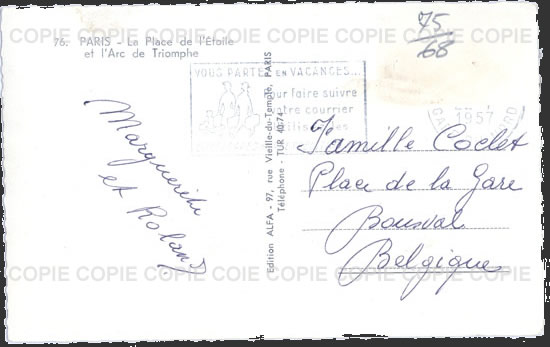 76. PARIS - La Place de l'Étoile
et l'Arc de Triomphe
75
68
VOUS PARTEZ EN VACANCES...
Pour faire suivre
votre courrier
1957
Marguerite
et Roland
Edition ALFA - 97, rue Vieille-du-Temple, PARIS
Téléphone - TUR 40-74
Famille Coclet
Place de la Gare
Bousval
Belgique
COPIE COPIE COPIE COPIE COPIE COPIE COPIE COPIE
COPIE COPIE COPIE COPIE COPIE COPIE COPIE
COPIE COPIE COIE COPIE COPIE COPIE COPIE